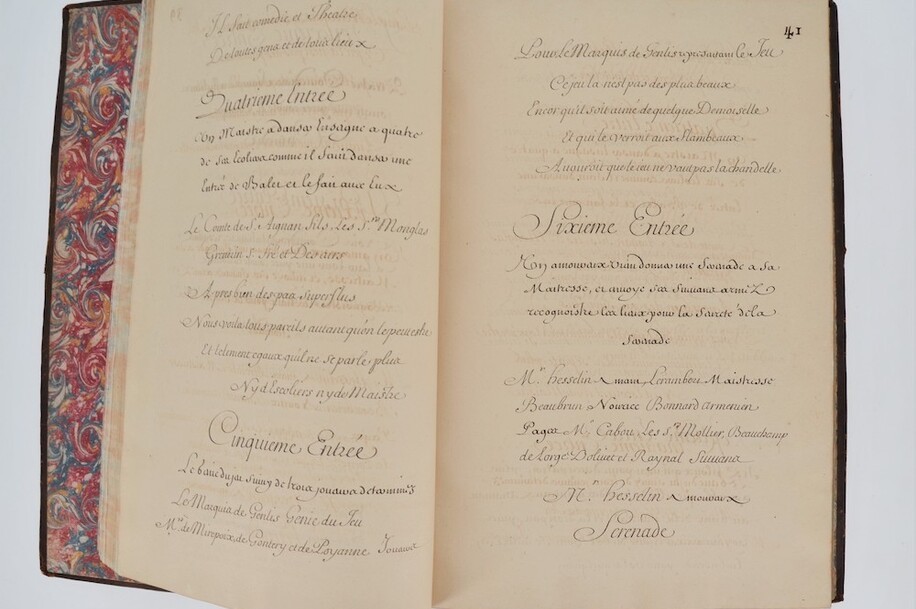 Il fait comedie et Theatre
De toutes gens et de tous lieux
Quatrieme Entrée
Un Maistre a danser Enseigne a quatre
de ses Ecoliers comme il faut danser une
Entrée de Balet et le fait avec Eux
Le Comte de St. Aignan fils, Les Srs. Monglas
et Desairs
Apres bien des pas superflus
Nous voila tous pareils autant qu'on le peut estre
Et tellement egaux qu'il ne se parle plus
Ny d'Escoliers ny de Maistre
Cinquieme Entrée
Le baue du jeu suivy de trois joueurs determinés
Le Marquis de Genlis Genie du Jeu
Mrs. de Mirepoix de Gontery et de Poyanne Joueurs
41
Pour le Marquis de Genlis representant le Jeu
Ce jeu la n'est pas des plus beaux
Encor qu'il soit aimé de quelque Demoiselle
Et qui le verroit aux flambeaux
Avouroit que le jeu ne vaut pas la chandelle
Sixieme Entrée
Un amoureux vient donner une Serenade a sa
Maitresse, et envoye ses suivans armez
recognoistre les lieux pour la sureté de la
Serenade
Mr. hesselin Amant, Lerambert Maistresse
Beaubrun Nourice Bonnard armenien
Pages Mr. Cabou, Les Srs. Mollier, Beauchamp
de Lorge Dolivet et Raynal Suivans
Mr. hesselin Amoureux
Serenade